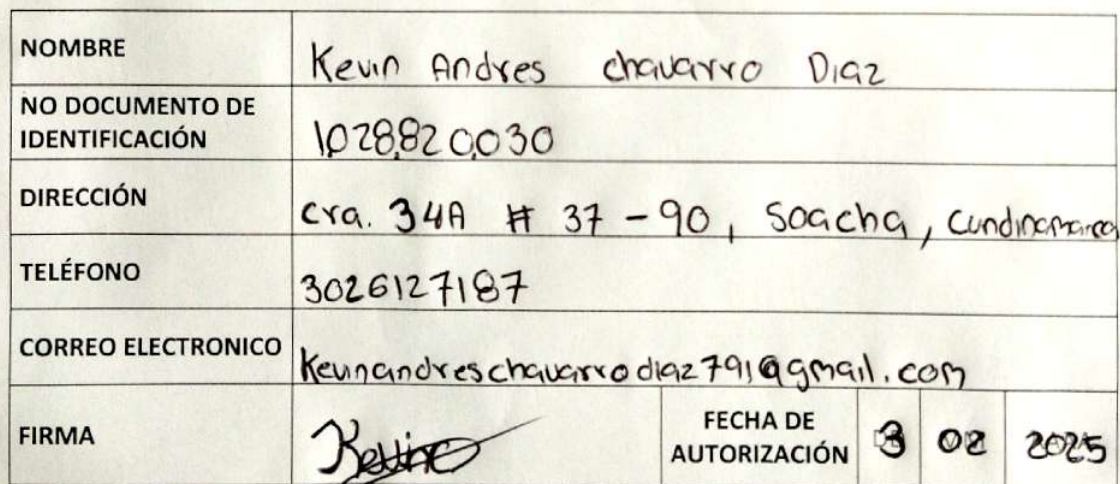 NOMBRE Kevin Andres chavarro Diaz
NO DOCUMENTO DE
IDENTIFICACIÓN 1.028.820.030
DIRECCIÓN cra. 34A # 37 - 90, Soacha, Cundinamarca
TELÉFONO 3026127187
CORREO ELECTRONICO Kevinandreschavarrodiaz791@gmail.com
FIRMA Kevin FECHA DE
AUTORIZACIÓN 3 02 2025